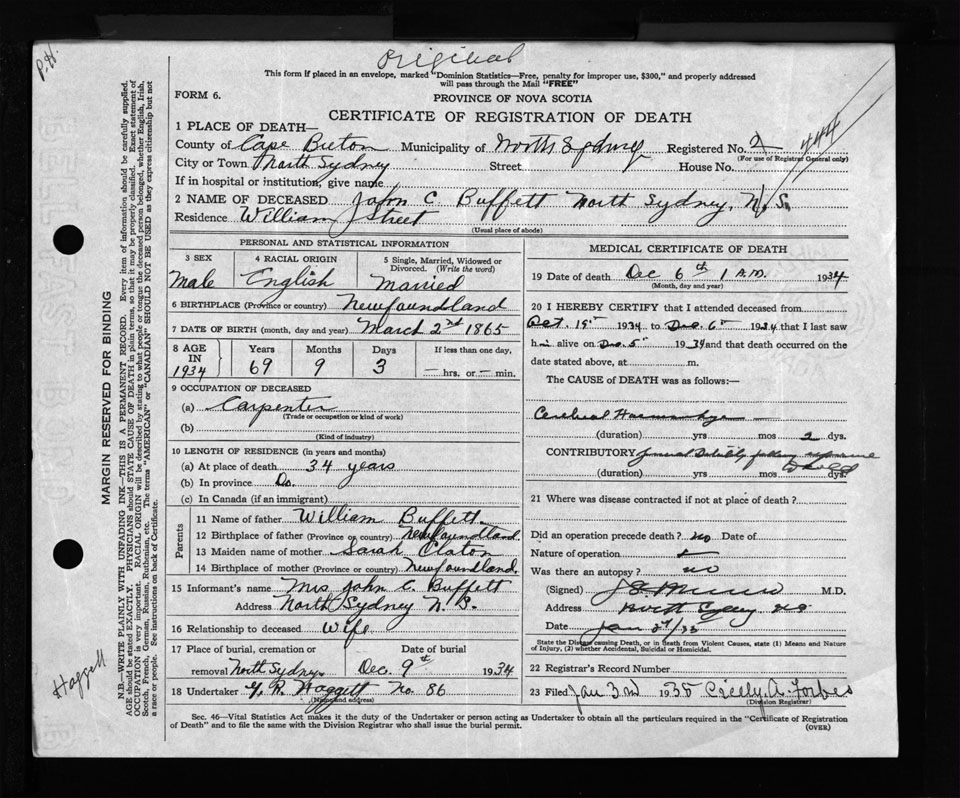 P.H.
Original
This form if placed in an envelope, marked "Dominion Statistics—Free, penalty for improper use, $300," and properly addressed
will pass through the Mail "FREE"
FORM 6.
PROVINCE OF NOVA SCOTIA
CERTIFICATE OF REGISTRATION OF DEATH
444
1 PLACE OF DEATH—
County of Cape Breton Municipality of North Sydney Registered No. 2
(For use of Registrar General only)
City or Town North Sydney Street House No.
If in hospital or institution, give name
2 NAME OF DECEASED John C. Buffett North Sydney, N.S.
Residence William Street
(Usual place of abode)
PERSONAL AND STATISTICAL INFORMATION
3 SEX 4 RACIAL ORIGIN 5 Single, Married, Widowed or Divorced. (Write the word)
Male English Married
6 BIRTHPLACE (Province or country) Newfoundland
7 DATE OF BIRTH (month, day and year) March 2nd 1865
8 AGE IN 1934 Years Months Days If less than one day,
69 9 3 — hrs. or — min.
9 OCCUPATION OF DECEASED
(a) Carpenter
(Trade or occupation or kind of work)
(b)
(Kind of industry)
10 LENGTH OF RESIDENCE (in years and months)
(a) At place of death 34 years
(b) In province Do.
(c) In Canada (if an immigrant)
Parents
11 Name of father William Buffett.
12 Birthplace of father (Province or country) Newfoundland.
13 Maiden name of mother Sarah Claton
14 Birthplace of mother (Province or country) Newfoundland.
15 Informant's name Mrs John C. Buffett
Address North Sydney N.S.
16 Relationship to deceased Wife
17 Place of burial, cremation or removal North Sydney Date of burial Dec. 9th 1934
18 Undertaker Haggett No. 86
(Name and address)
MEDICAL CERTIFICATE OF DEATH
19 Date of death Dec 6th 1 A.M. 1934
(Month, day and year)
20 I HEREBY CERTIFY that I attended deceased from
Oct. 19th 1934 to Dec 6th 1934 that I last saw
him alive on Dec 5th 1934 and that death occurred on the
date stated above, at m.
The CAUSE of DEATH was as follows:—
Cerebral Haemorrhage
(duration) yrs mos 2 dys.
CONTRIBUTORY General Debility
(duration) yrs mos dys.
21 Where was disease contracted if not at place of death?
Did an operation precede death? no Date of
Nature of operation
Was there an autopsy? no
(Signed) M.D.
Address North Sydney NS
Date Jan /35
State the Disease causing Death, or in Death from Violent Causes, state (1) Means and Nature
of Injury, (2) whether Accidental, Suicidal or Homicidal.
22 Registrar's Record Number
23 Filed Jan 3rd 1935 Cicely A. Forbes
(Division Registrar)
Sec. 46—Vital Statistics Act makes it the duty of the Undertaker or person acting as Undertaker to obtain all the particulars required in the "Certificate of Registration
of Death" and to file the same with the Division Registrar who shall issue the burial permit. (OVER)
MARGIN RESERVED FOR BINDING
N.B.—WRITE PLAINLY WITH UNFADING INK—THIS IS A PERMANENT RECORD. Every item of information should be carefully supplied.
AGE should be stated EXACTLY. PHYSICIANS should STATE CAUSE OF DEATH in plain terms, so that it may be properly classified. Exact statement of
OCCUPATION is very important. RACIAL ORIGIN will be described by stating to what people or tongue the deceased person belonged, whether English, Irish,
Scotch, French, German, Russian, Ruthenian, etc. The terms "AMERICAN" or "CANADIAN" SHOULD NOT BE USED as they express citizenship but not
a race or people. See instructions on back of Certificate.
Haggett